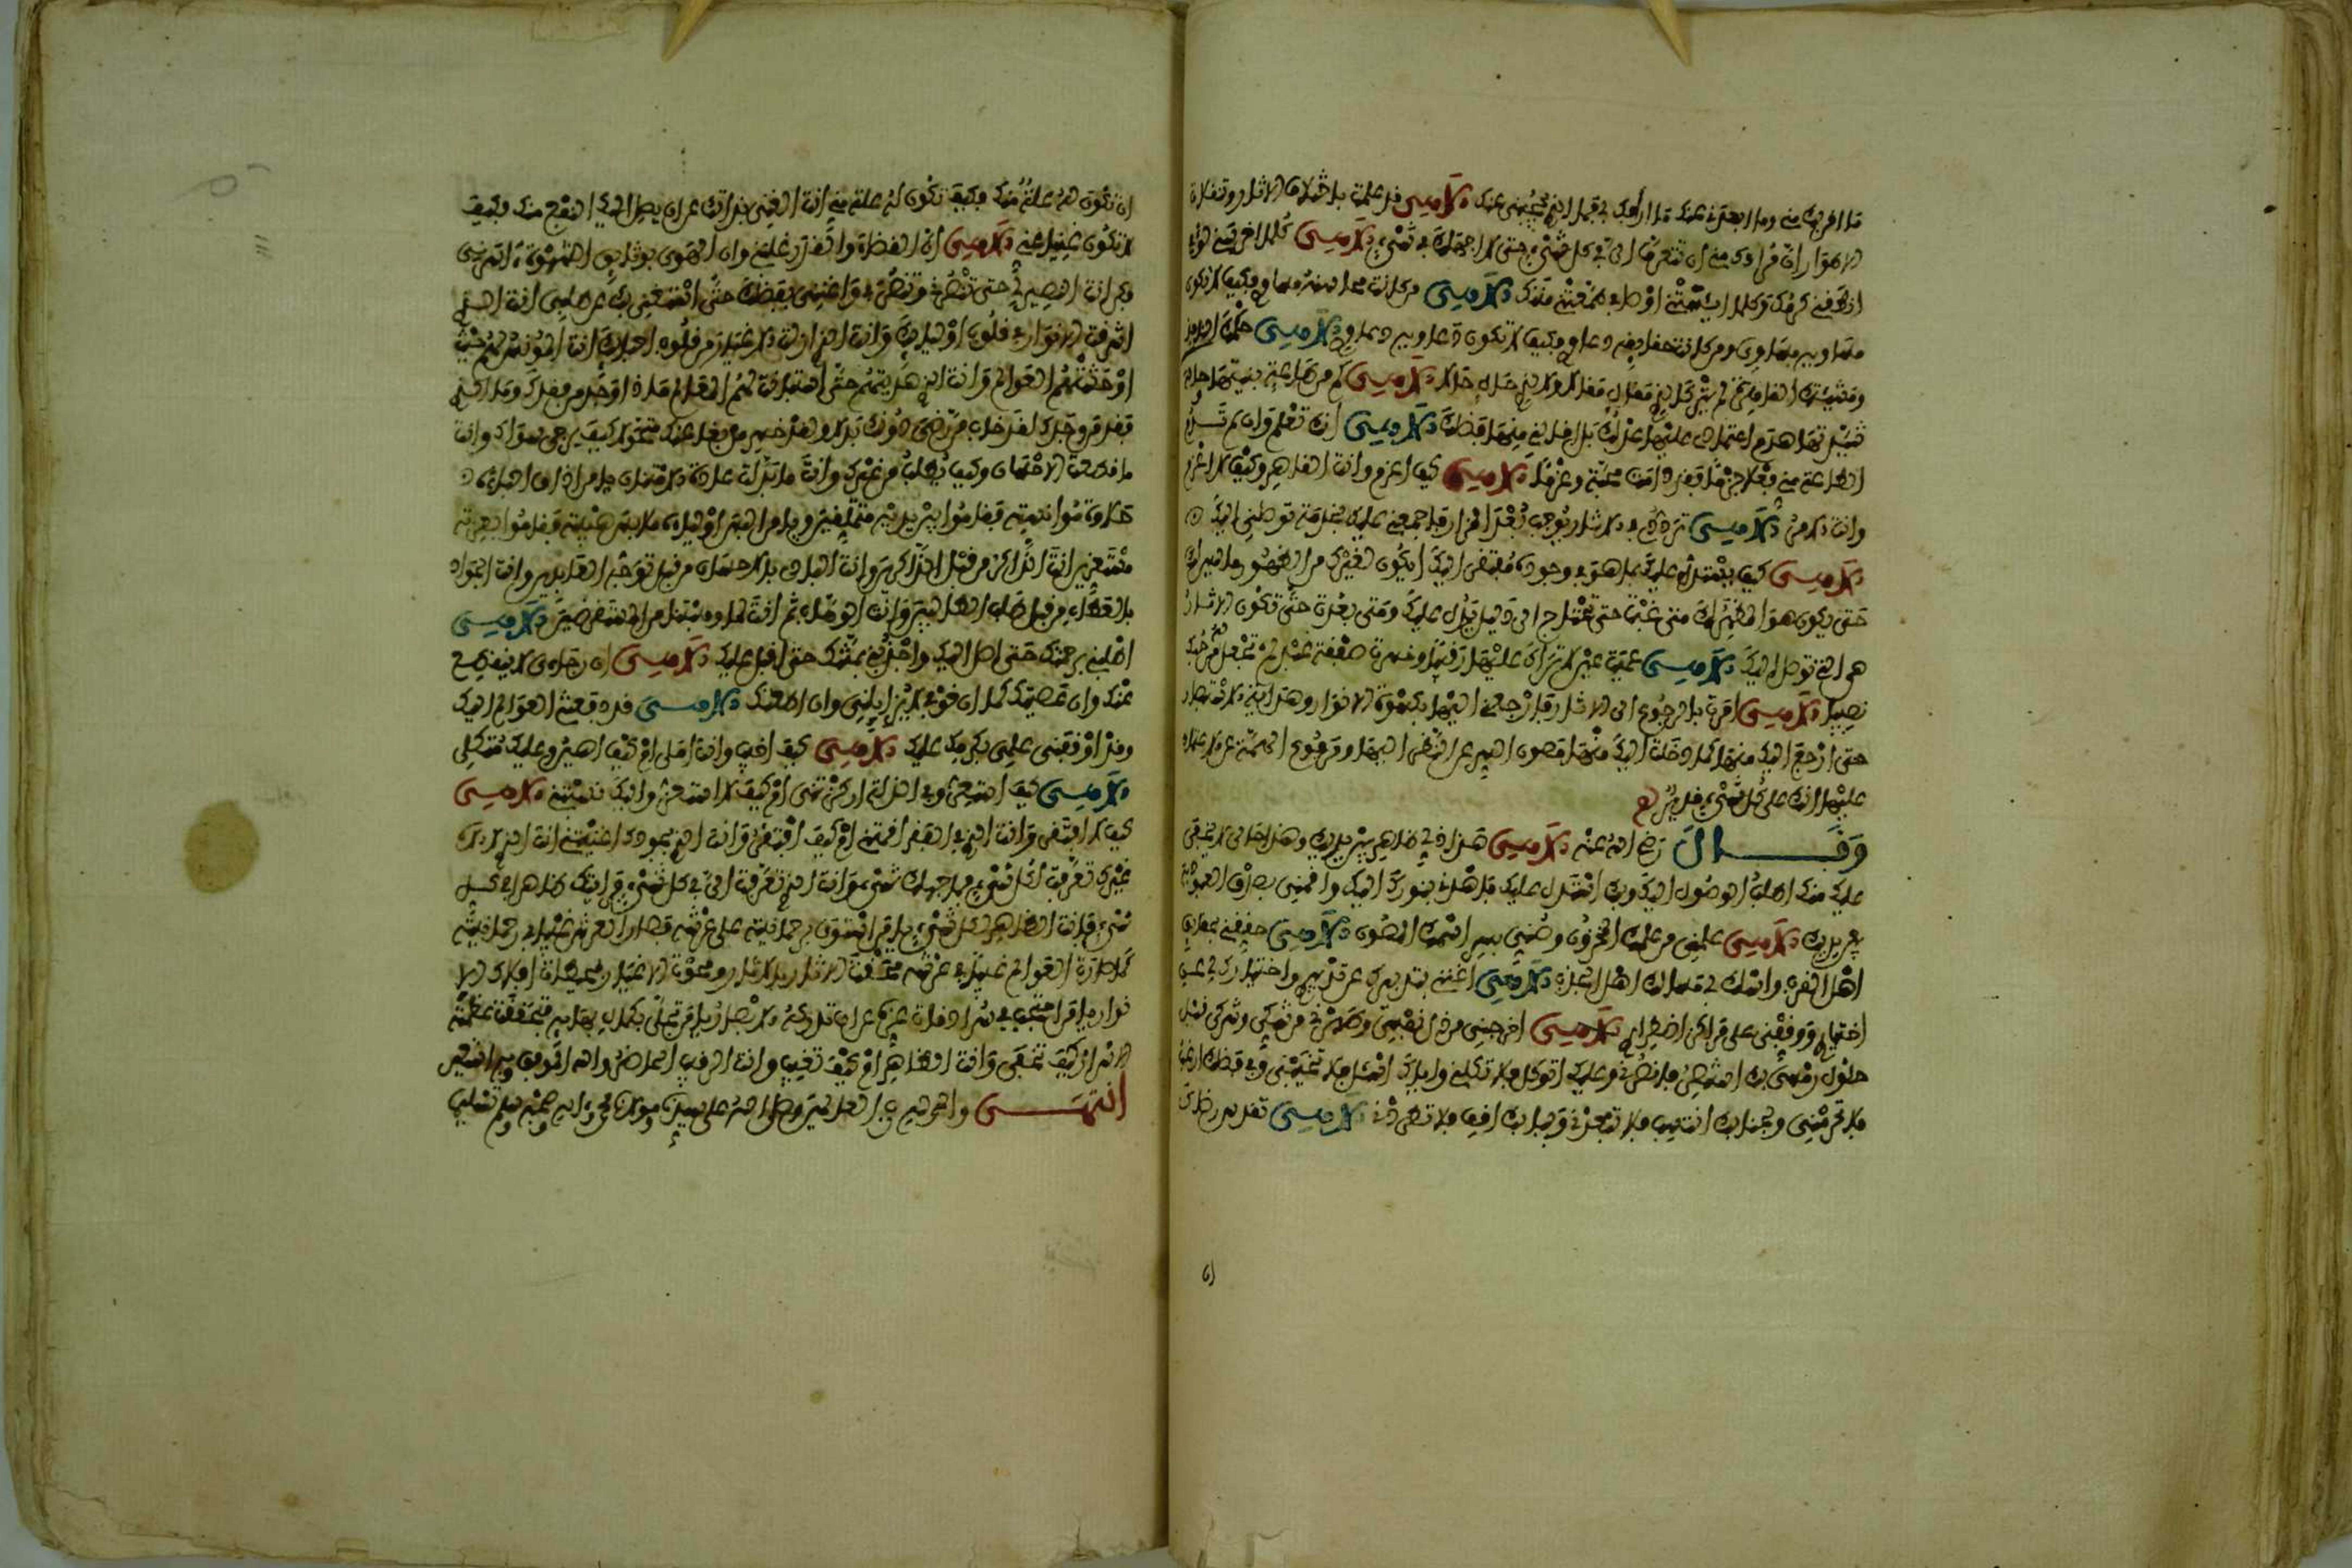 ما اقربك مني وما ابعدني عنك ما ارأفك بي فما الذي يحجبني عنك الاهي قد علمت باختلاف الاثار وتنقلات
الاطوار ان مرادك مني ان تتعرف الي في كل شيء حتى لا اجهلك في شيء الاهي كلما اخرسني لؤمي
انطقني كرمك وكلما ايأستني اوصافي اطمعتني منتك الاهي من كانت محاسنه مساوي فكيف لا تكون
مساويه مساوي ومن كانت حقايقه دعاوي فكيف لا تكون دعاويه دعاوي الاهي حكمك النافذ
ومشيئتك القاهرة لم يتركا لذي مقال مقالا ولا لذي حال حالا الاهي كم من طاعة بنيتها وحالة
شيدتها هدم اعتمادي عليها عدلك بل اقالني منها فضلك الاهي انك تعلم وان لم تدم
الطاعة مني فعلا جزما فقد دامت محبة وعزما الاهي كيف اعزم وانت القاهر وكيف لا اعزم
وانت الامر الاهي ترددي في الاثار يوجب بعد المزار فاجمعني عليك بخدمة توصلني اليك
الاهي كيف يستدل عليك بما هو في وجوده مفتقر اليك ايكون لغيرك من الظهور ما ليس لك
حتى يكون هو المظهر لك متى غبت حتى تحتاج الى دليل يدل عليك ومتى بعدت حتى تكون الاثار
هي التي توصل اليك الاهي عميت عين لا تراك عليها رقيبا وخسرت صفقة عبد لم تجعل له من حبك
نصيبا الاهي امرت بالرجوع الى الاثار فارجعني اليها بكسوة الانوار وهداية الاستبصار
حتى ارجع اليك منها كما دخلت اليك منها مصون السر عن النظر اليها ومرفوع الهمة عن الاعتماد
عليها انك على كل شيء قدير
وقال رضي الله عنه الاهي هذا ذلي ظاهر بين يديك وهذا حالي لا يخفى
عليك منك اطلب الوصول اليك وبك استدل عليك فاهدني بنورك اليك واقمني بصدق العبودية
بين يديك الاهي علمني من علمك المخزون وصني بسر اسمك المصون الاهي حققني بحقائق
اهل القرب واسلك بي مسالك اهل الجذب الاهي اغنني بتدبيرك عن تدبيري واختيارك لي عن
اختياري ووقفني على مراكز اضطراري الاهي اخرجني من ذل نفسي وطهرني من شكي وشركي قبل
حلول رمسي بك استنصر فانصرني وعليك اتوكل فلا تكلني واياك اسئل فلا تخيبني وفي فضلك ارغب
فلا تحرمني ولجنابك انتسب فلا تبعدني وببابك اقف فلا تطردني الاهي تقدس رضاك
ان
ان تكون له علة منك فكيف تكون له علة مني انت الغني بذاتك عن ان يصل اليك النفع منك فكيف
لا تكون غنيا عني الاهي ان القضاء والقدر غلبني وان الهوى بوثايق الشهوة اسرني
فكن انت النصير لي حتى تنصرني وتنصر بي واغنني بفضلك حتى استغني بك عن طلبي انت الذي
اشرقت الانوار في قلوب اوليايك وانت الذي ازلت الاغيار من قلوب احبابك انت المونس لهم حيث
اوحشتهم العوالم وانت الذي هديتهم حتى استبانت لهم المعالم ماذا وجد من فقدك وما الذي
فقد من وجدك لقد خاب من رضي دونك بدلا ولقد خسر من بغى عنك متحولا كيف يرجى سواك وانت
ما قطعت الاحسان وكيف يطلب من غيرك وانت ما بدلت عادة الامتنان يا من اذاق احباءه
حلاوة موانسته فقاموا بين يديه متملقين ويا من البس اولياءه ملابس هيبته فقاموا بعزته
مستعزين انت الذاكر من قبل الذاكرين وانت البادي بالاحسان من قبل توجه العابدين وانت الجواد
بالعطاء من قبل طلب الطالبين وانت الوهاب ثم انت لما وهبتنا من المستقرضين الاهي
اطلبني برحمتك حتى اصل اليك واجذبني بمنتك حتى اقبل عليك الاهي ان رجاءي لا ينقطع
عنك وان عصيتك كما ان خوفي لا يزايلني وان اطعتك الاهي قد دفعتني العوالم اليك
وقد اوقفني علمي بكرمك عليك الاهي كيف اخيب وانت املي ام كيف اهان وعليك متكلي
الاهي كيف استعز وفي الذلة اركزتني ام كيف لا استعز واليك نسبتني الاهي
كيف لا افتقر وانت الذي في الفقر اقمتني ام كيف افتقر وانت الذي بجودك اغنيتني انت الذي لا اله
غيرك تعرفت لكل شيء فما جهلك شيء وانت الذي تعرفت الي في كل شيء فرايتك ظاهرا في كل
شيء فانت الظاهر لكل شيء يا من استوى برحمانيته على عرشه فصار العرش غيبا في رحمانيته
كما صارت العوالم غيبا في عرشه محقت الاثار بالاثار ومحوت الاغيار بمحيطات افلاك الا
نوار يا من احتجب في سرادقات عزه عن ان تدركه الابصار يا من تجلى بكمال بهايه فتحققت عظمته
الاسرار كيف تخفى وانت الظاهر ام كيف تغيب وانت الرقيب الحاضر والله الموفق وبه استعين
انتهى والحمد لله رب العالمين وصلى الله على سيدنا ومولانا محمد واله وصحبه وسلم تسليما